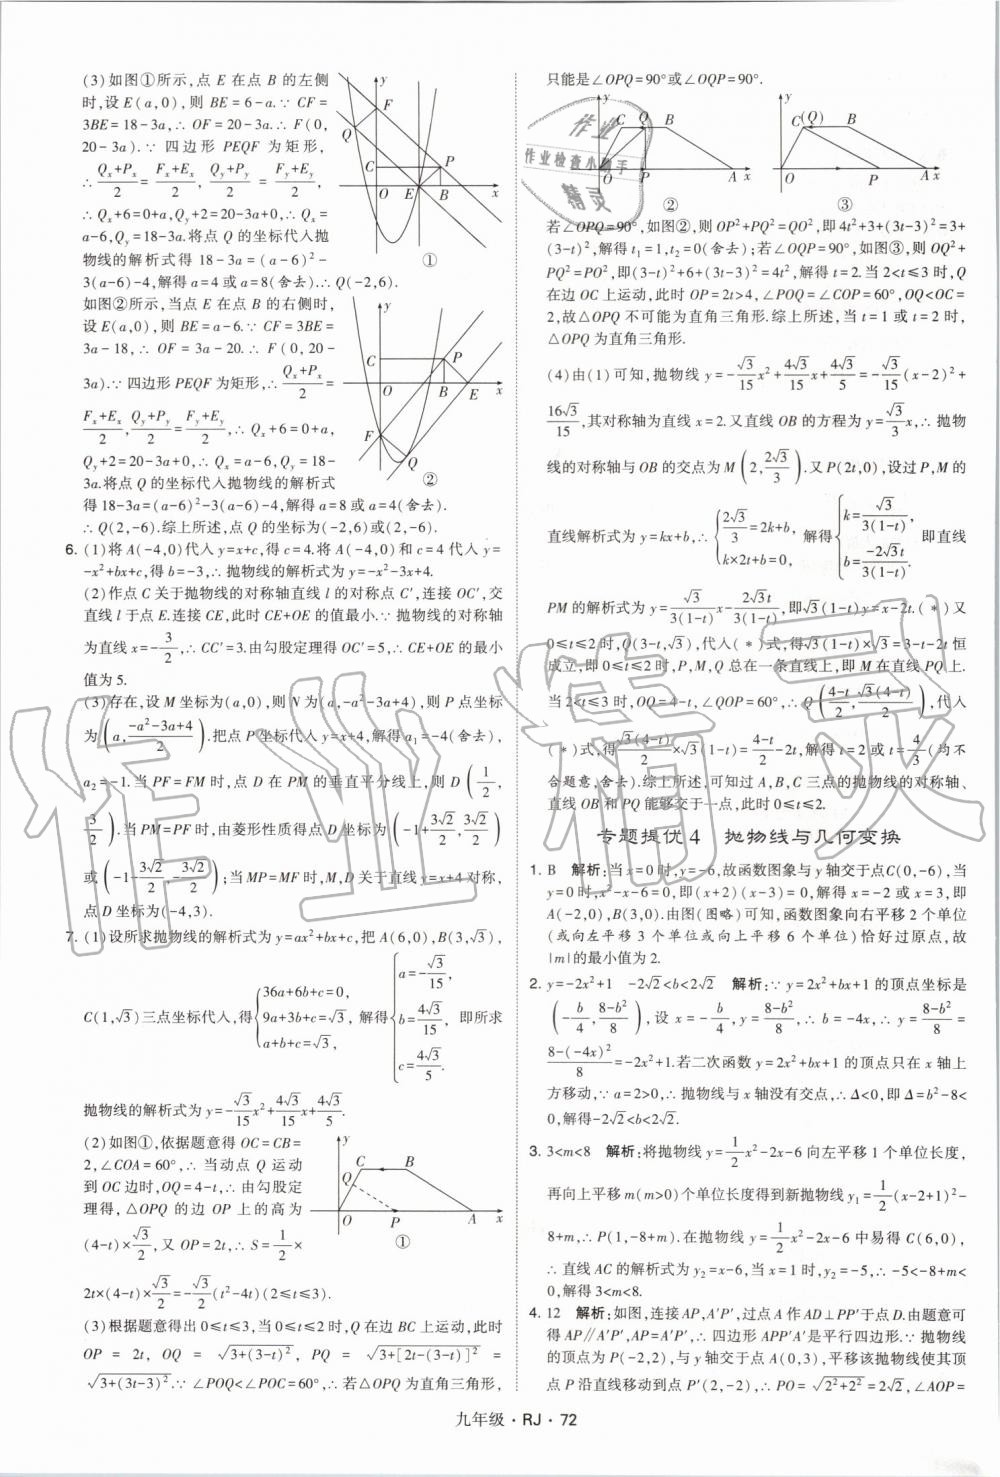 (3)如图①所示,点 E 在点 B 的左侧
时,设 E(a,0),则 BE=6-a.∵ CF=
3BE=18-3a,∴ OF=20-3a.∴ F(0,
20-3a).∵ 四边形 PEQF 为矩形,
∴ (Qx+Px)/2=(Fx+Ex)/2, (Qy+Py)/2=(Fy+Ey)/2,
∴ Qx+6=0+a,Qy+2=20-3a+0,∴ Qx=
a-6,Qy=18-3a.将点 Q 的坐标代入抛
物线的解析式得 18-3a=(a-6)²-
3(a-6)-4,解得 a=4或 a=8(舍去).∴ Q(-2,6).
如图②所示,当点 E 在点 B 的右侧时,
设 E(a,0),则 BE=a-6.∵ CF=3BE=
3a-18,∴ OF=3a-20.∴ F(0,20-
3a).∵ 四边形 PEQF 为矩形,∴ (Qx+Px)/2=
(Fx+Ex)/2, (Qy+Py)/2=(Fy+Ey)/2,∴ Qx+6=0+a,
Qy+2=20-3a+0,∴ Qx=a-6,Qy=18-
3a.将点 Q 的坐标代入抛物线的解析式
得 18-3a=(a-6)²-3(a-6)-4,解得 a=8 或 a=4(舍去).
∴ Q(2,-6).综上所述,点 Q 的坐标为(-2,6)或(2,-6).
y F Q C P O E B x ①
y C P O B E x F Q ②
6. (1)将 A(-4,0)代入 y=x+c,得 c=4.将 A(-4,0)和 c=4 代入 y=
-x²+bx+c,得 b=-3,∴ 抛物线的解析式为 y=-x²-3x+4.
(2)作点 C 关于抛物线的对称轴直线 l 的对称点 C′,连接 OC′,交
直线 l 于点 E.连接 CE,此时 CE+OE 的值最小.∵ 抛物线的对称轴
为直线 x=-3/2,∴ CC′=3.由勾股定理得 OC′=5,∴ CE+OE 的最小
值为 5.
(3)存在,设 M 坐标为(a,0),则 N 为(a,-a²-3a+4),则 P 点坐标
为(a,(-a²-3a+4)/2).把点 P 坐标代入 y=x+4,解得 a₁=-4(舍去),
a₂=-1.当 PF=FM 时,点 D 在 PM 的垂直平分线上,则 D(1/2,
3/2).当 PM=PF 时,由菱形性质得点 D 坐标为(-1+3√2/2,3√2/2)
或(-1-3√2/2,-3√2/2);当 MP=MF 时,M,D 关于直线 y=-x+4 对称,
点 D 坐标为(-4,3).
7. (1)设所求抛物线的解析式为 y=ax²+bx+c,把 A(6,0),B(3,√3),
C(1,√3)三点坐标代入,得{36a+6b+c=0, 9a+3b+c=√3, a+b+c=√3, 解得{a=-√3/15, b=4√3/15, c=4√3/5. 即所求
抛物线的解析式为 y=-√3/15x²+4√3/15x+4√3/5.
(2)如图①,依据题意得 OC=CB=
2,∠COA=60°,∴ 当动点 Q 运动
到 OC 边时,OQ=4-t,∴ 由勾股定
理得,△OPQ 的边 OP 上的高为
(4-t)×√3/2,又 OP=2t,∴ S=1/2×
2t×(4-t)×√3/2=-√3/2(t²-4t)(2≤t≤3).
y C B Q O P A x ①
(3)根据题意得出 0≤t≤3,当 0≤t≤2 时,Q 在边 BC 上运动,此时
OP = 2t, OQ = √(3+(3-t)²), PQ = √(3+[2t-(3-t)]²) =
√(3+(3t-3)²).∵ ∠POQ<∠POC=60°,∴ 若△OPQ 为直角三角形,
只能是∠OPQ=90°或∠OQP=90°.
y C Q B O P A x ②
y C(Q) B O P A x ③
作业
作业检查小助手
精灵
若∠OPQ=90°,如图②,则 OP²+PQ²=QO²,即4t²+3+(3t-3)²=3+
(3-t)²,解得 t₁=1,t₂=0(舍去);若∠OQP=90°,如图③,则 OQ²+
PQ²=PO²,即(3-t)²+6+(3t-3)²=4t²,解得 t=2.当 2<t≤3 时,Q
在边 OC 上运动,此时 OP=2t>4,∠POQ=∠COP=60°,OQ<OC=
2,故△OPQ 不可能为直角三角形.综上所述,当 t=1 或 t=2 时,
△OPQ 为直角三角形.
(4)由(1)可知,抛物线 y=-√3/15x²+4√3/15x+4√3/5=-√3/15(x-2)²+
16√3/15,其对称轴为直线 x=2.又直线 OB 的方程为 y=√3/3x,∴ 抛物
线的对称轴与 OB 的交点为 M(2,2√3/3).又 P(2t,0),设过 P,M 的
直线解析式为 y=kx+b,∴{2√3/3=2k+b, k×2t+b=0, 解得{k=√3/(3(1-t)), b=-2√3t/(3(1-t)). 即直线
PM 的解析式为 y=√3/(3(1-t))x-2√3t/(3(1-t)),即√3(1-t)y=x-2t.(*)又
0≤t≤2 时,Q(3-t,√3),代入(*)式,得√3(1-t)×√3=3-t-2t 恒
成立,即 0≤t≤2 时,P,M,Q 总在一条直线上,即 M 在直线 PQ 上.
当 2<t≤3 时,OQ=4-t,∠QOP=60°,∴ Q((4-t)/2,√3(4-t)/2),代入
(*)式,得√3(4-t)/2×√3(1-t)=(4-t)/2-2t,解得 t=2 或 t=4/3(均不
合题意,舍去).综上所述,可知过 A,B,C 三点的抛物线的对称轴、
直线 OB 和 PQ 能够交于一点,此时 0≤t≤2.
专题提优4 抛物线与几何变换
1. B 解析:当 x=0 时,y=-6,故函数图象与 y 轴交于点 C(0,-6),当
y=0 时,x²-x-6=0,即(x+2)(x-3)=0,解得 x=-2 或 x=3,即
A(-2,0),B(3,0).由图(图略)可知,函数图象向右平移 2 个单位
(或向左平移 3 个单位或向上平移 6 个单位)恰好过原点,故
|m|的最小值为 2.
2. y=-2x²+1 -2√2<b<2√2 解析:∵ y=2x²+bx+1 的顶点坐标是
(-b/4,(8-b²)/8),设 x=-b/4,y=(8-b²)/8,∴ b=-4x,∴ y=(8-b²)/8=
(8-(-4x)²)/8=-2x²+1.若二次函数 y=2x²+bx+1 的顶点只在 x 轴上
方移动,∵ a=2>0,∴ 抛物线与 x 轴没有交点,∴ Δ<0,即 Δ=b²-8<
0,解得-2√2<b<2√2.
3. 3<m<8 解析:将抛物线 y=1/2x²-2x-6 向左平移 1 个单位长度,
再向上平移 m(m>0)个单位长度得到新抛物线 y₁=1/2(x-2+1)²-
8+m,∴ P(1,-8+m).在抛物线 y=1/2x²-2x-6 中易得 C(6,0),
∴ 直线 AC 的解析式为 y₂=x-6,当 x=1 时,y₂=-5,∴ -5<-8+m<
0,解得 3<m<8.
4. 12 解析:如图,连接 AP,A′P′,过点 A 作 AD⊥PP′于点 D.由题意可
得 AP∥A′P′,AP=A′P′,∴ 四边形 APP′A′是平行四边形.∵ 抛物线
的顶点为 P(-2,2),与 y 轴交于点 A(0,3),平移该抛物线使其顶
点 P 沿直线移动到点 P′(2,-2),∴ PO=√(2²+2²)=2√2,∠AOP=
作业精灵
九年级 · RJ · 72